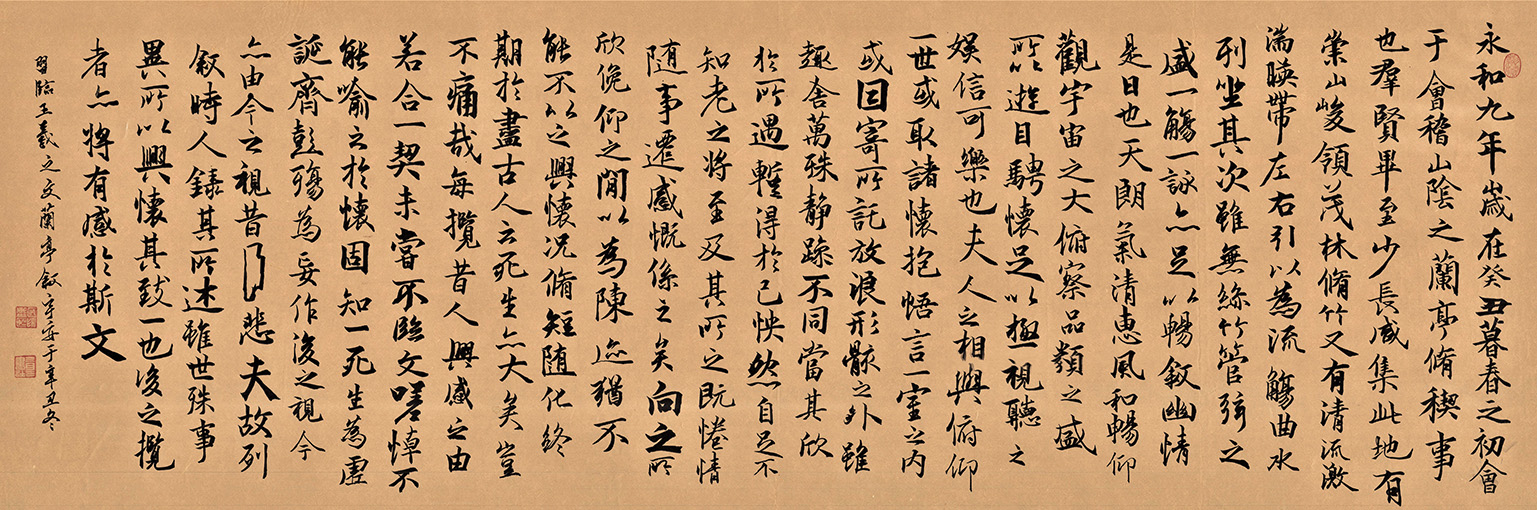 永和九年歲在癸丑暮春之初會
于會稽山陰之蘭亭脩稧事
也羣賢畢至少長咸集此地有
崇山峻領茂林脩竹又有清流激
湍暎帶左右引以為流觴曲水
列坐其次雖無絲竹管弦之
盛一觴一詠亦足以暢敘幽情
是日也天朗氣清惠風和暢仰
觀宇宙之大俯察品類之盛
所以遊目騁懷足以極視聽之
娛信可樂也夫人之相與俯仰
一世或取諸懷抱悟言一室之內
或因寄所託放浪形骸之外雖
趣舍萬殊静躁不同當其欣
於所遇蹔得於己怏然自足不
知老之將至及其所之既惓情
随事遷感慨係之矣向之所
欣俛仰之閒以為陳迹猶不
能不以之興懷况脩短随化終
期於盡古人云死生亦大矣豈
不痛哉每攬昔人興感之由
若合一契未嘗不臨文嗟悼不
能喻之於懷固知一死生為虛
誕齊彭殤為妄作後之視今
亦由今之視昔悲夫故列
敘時人録其所述雖世殊事
異所以興懷其致一也後之攬
者亦將有感於斯文
習臨王羲之文蘭亭敘于辛丑冬